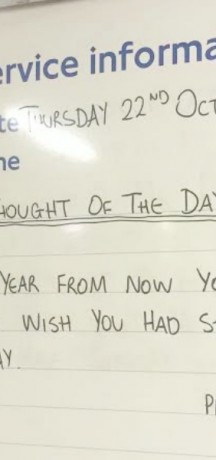 ervice informa
te THURSDAY 22ND OCT
me
HOUGHT OF THE DA
YEAR FROM NOW Yo
WISH YOU HAD S
AY.
P